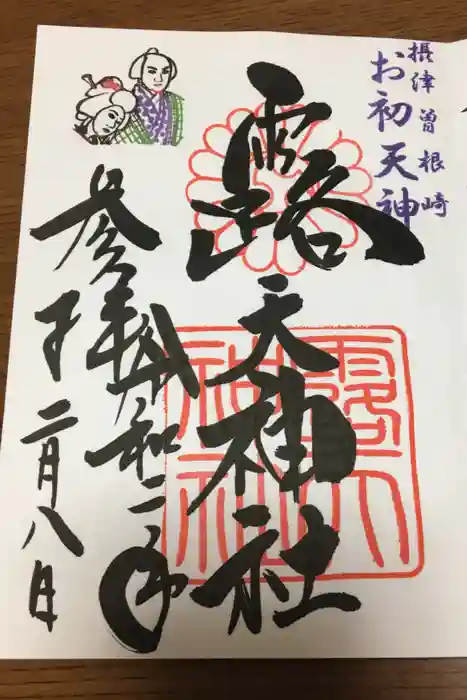 摂津曽根崎
お初天神
露天神社
参拝 令和二年
子 二月八日
露天
神社